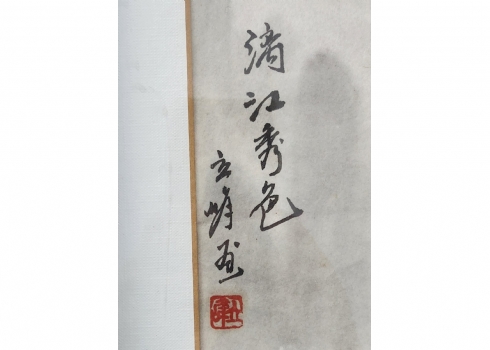 漓江秀色
立峰画